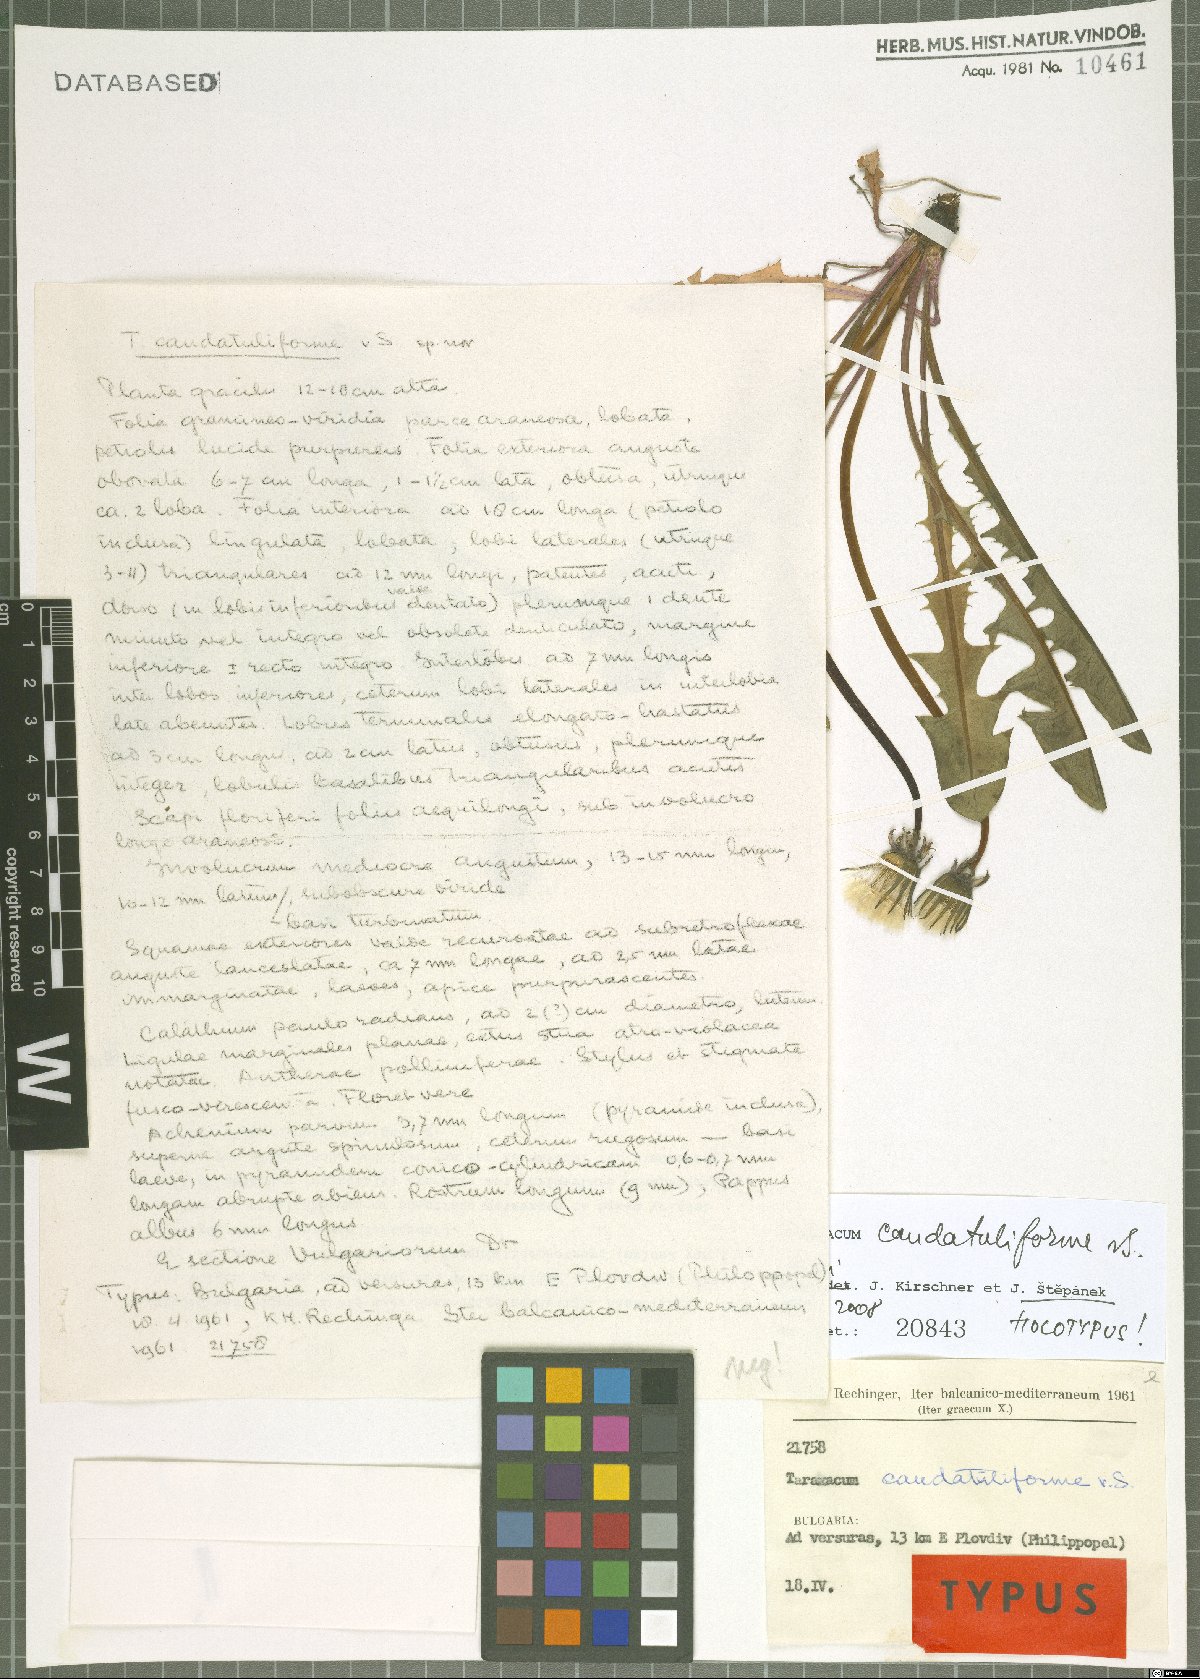 DATABASED
HERB. MUS. HIST. NATUR. VINDOB.
Acqu. 1981 No. 10461
T. caudatuliforme v S. sp. nov
Planta gracilis 12-18 cm alta.
Folia gramineo-viridia parce araneosa, lobata,
petiolis lucide purpureis. Folia exteriora anguste
obovata 6-7 cm longa, 1-1½ cm lata, obtusa, utrinque
ca. 2 loba. Folia interiora ad 18 cm longa (petiolo
incluso) lingulata, lobata, lobi laterales (utrinque
3-4) triangulares ad 12 mm longi, patentes, acuti,
dorso (in lobis inferioribus valde dentato) plerumque 1 dente
minuto vel integro vel obsolete denticulato, margine
inferiore ± recto integro. Interlobis ad 7 mm longis
inter lobos inferiores, ceterum lobi laterales in interlobia
late abeuntes. Lobus terminalis elongato-hastatus
ad 3 cm longus, ad 2 cm latus, obtusus, plerumque
integer, lobulis basalibus triangularibus acutis
Scapi floriferi foliis aequilongi, sub involucro
longe araneosi.
Involucrum mediocre angustum, 13-15 mm longum,
10-12 mm latum, subobscure viride
basi turbinatum.
Squamae exteriores valde recurvatae ad subretroflexae
anguste lanceolatae, ca 7 mm longae, ad 2,5 mm latae
immarginatae, laeves, apice purpurascentes.
Calathium paulo radians, ad 2 (?) cm diametro, luteum.
Ligulae marginales planae, extus stria atro-violacea
notatae. Antherae polliniferae. Stylus et stigmate
fusco-virescentia. Floret vere
Achenium parvum 3,7 mm longum (pyramide inclusa),
superne argute spinulosum, ceterum rugosum — basi
laeve, in pyramidem conico-cylindricam 0,6-0,7 mm
longam abrupte abiens. Rostrum longum (9 mm), Pappus
albus 6 mm longus.
E sectione Vulgariorum Dt
Typus: Bulgaria, ad versuras, 13 km E Plovdiv (Philoppopel)
18 4 1961, K H. Rechinger Iter balcanico-mediterraneum
1961 21758
cm
0
1
2
3
4
5
6
7
8
9
10
copyright reserved
W
ACUM caudatuliforme vS.
det. J. Kirschner et J. Štěpánek
2008
et.: 20843 HOLOTYPUS!
Rechinger, Iter balcanico-mediterraneum 1961
(Iter graecum X.)
21758
Taraxacum caudatuliforme v.S.
BULGARIA:
Ad versuras, 13 km E Plovdiv (Philippopel)
18.IV.
TYPUS